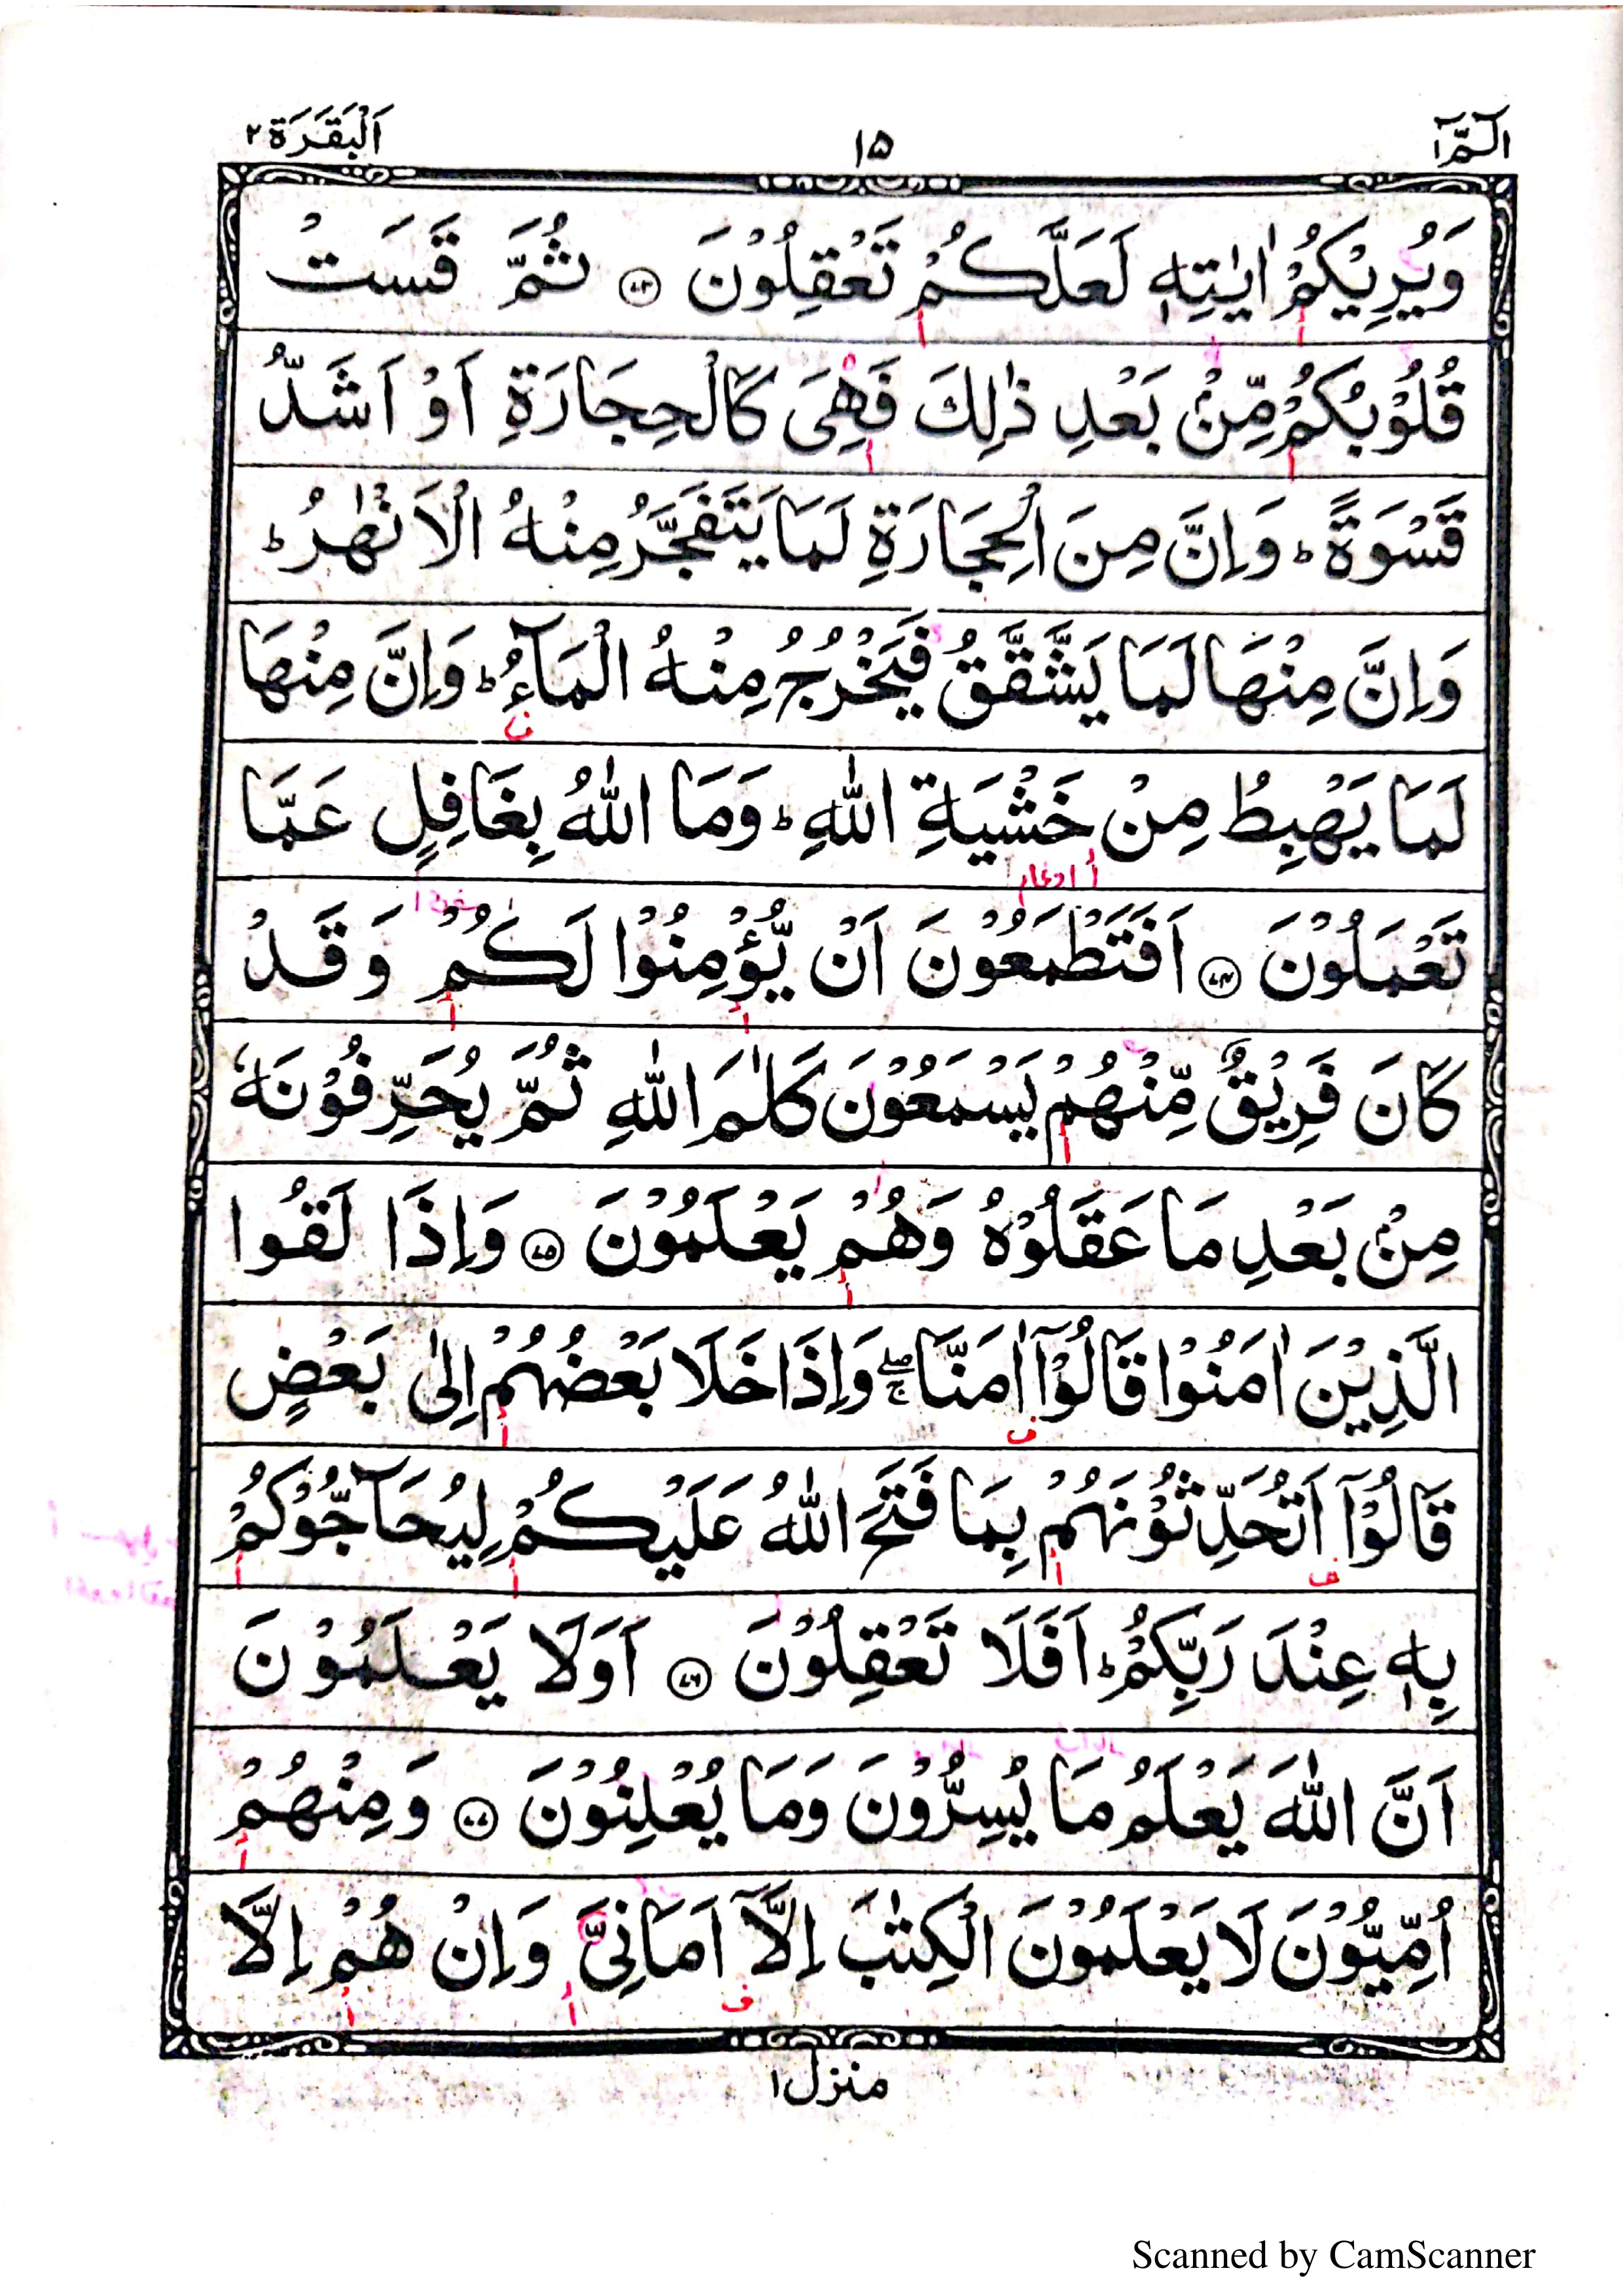 الٓمّٓ ۱ ۱۵ اَلْبَقَرَة ۲
وَيُرِيْكُمْ اٰيٰتِهٖ لَعَلَّكُمْ تَعْقِلُوْنَ ۝۷۳ ثُمَّ قَسَتْ
قُلُوْبُكُمْ مِّنْۢ بَعْدِ ذٰلِكَ فَهِيَ كَالْحِجَارَةِ اَوْ اَشَدُّ
قَسْوَةً ؕ وَاِنَّ مِنَ الْحِجَارَةِ لَمَا يَتَفَجَّرُ مِنْهُ الْاَنْهٰرُ ؕ
وَاِنَّ مِنْهَا لَمَا يَشَّقَّقُ فَيَخْرُجُ مِنْهُ الْمَآءُ ؕ وَاِنَّ مِنْهَا
ف
لَمَا يَهْبِطُ مِنْ خَشْيَةِ اللّٰهِ ؕ وَمَا اللّٰهُ بِغَافِلٍ عَمَّا
تَعْمَلُوْنَ ۝۷۴ اَفَتَطْمَعُوْنَ اَنْ يُّؤْمِنُوْا لَكُمْ وَقَدْ
كَانَ فَرِيْقٌ مِّنْهُمْ يَسْمَعُوْنَ كَلٰمَ اللّٰهِ ثُمَّ يُحَرِّفُوْنَهٗ
مِنْۢ بَعْدِ مَا عَقَلُوْهُ وَهُمْ يَعْلَمُوْنَ ۝۷۵ وَاِذَا لَقُوا
الَّذِيْنَ اٰمَنُوْا قَالُوْٓا اٰمَنَّا ۖۚ وَاِذَا خَلَا بَعْضُهُمْ اِلٰى بَعْضٍ
ف
قَالُوْٓا اَتُحَدِّثُوْنَهُمْ بِمَا فَتَحَ اللّٰهُ عَلَيْكُمْ لِيُحَآجُّوْكُمْ
ف
بِهٖ عِنْدَ رَبِّكُمْ ؕ اَفَلَا تَعْقِلُوْنَ ۝۷۶ اَوَلَا يَعْلَمُوْنَ
اَنَّ اللّٰهَ يَعْلَمُ مَا يُسِرُّوْنَ وَمَا يُعْلِنُوْنَ ۝۷۷ وَمِنْهُمْ
اُمِّيُّوْنَ لَا يَعْلَمُوْنَ الْكِتٰبَ اِلَّآ اَمَانِيَّ وَاِنْ هُمْ اِلَّا
ف
منزل ۱
Scanned by CamScanner